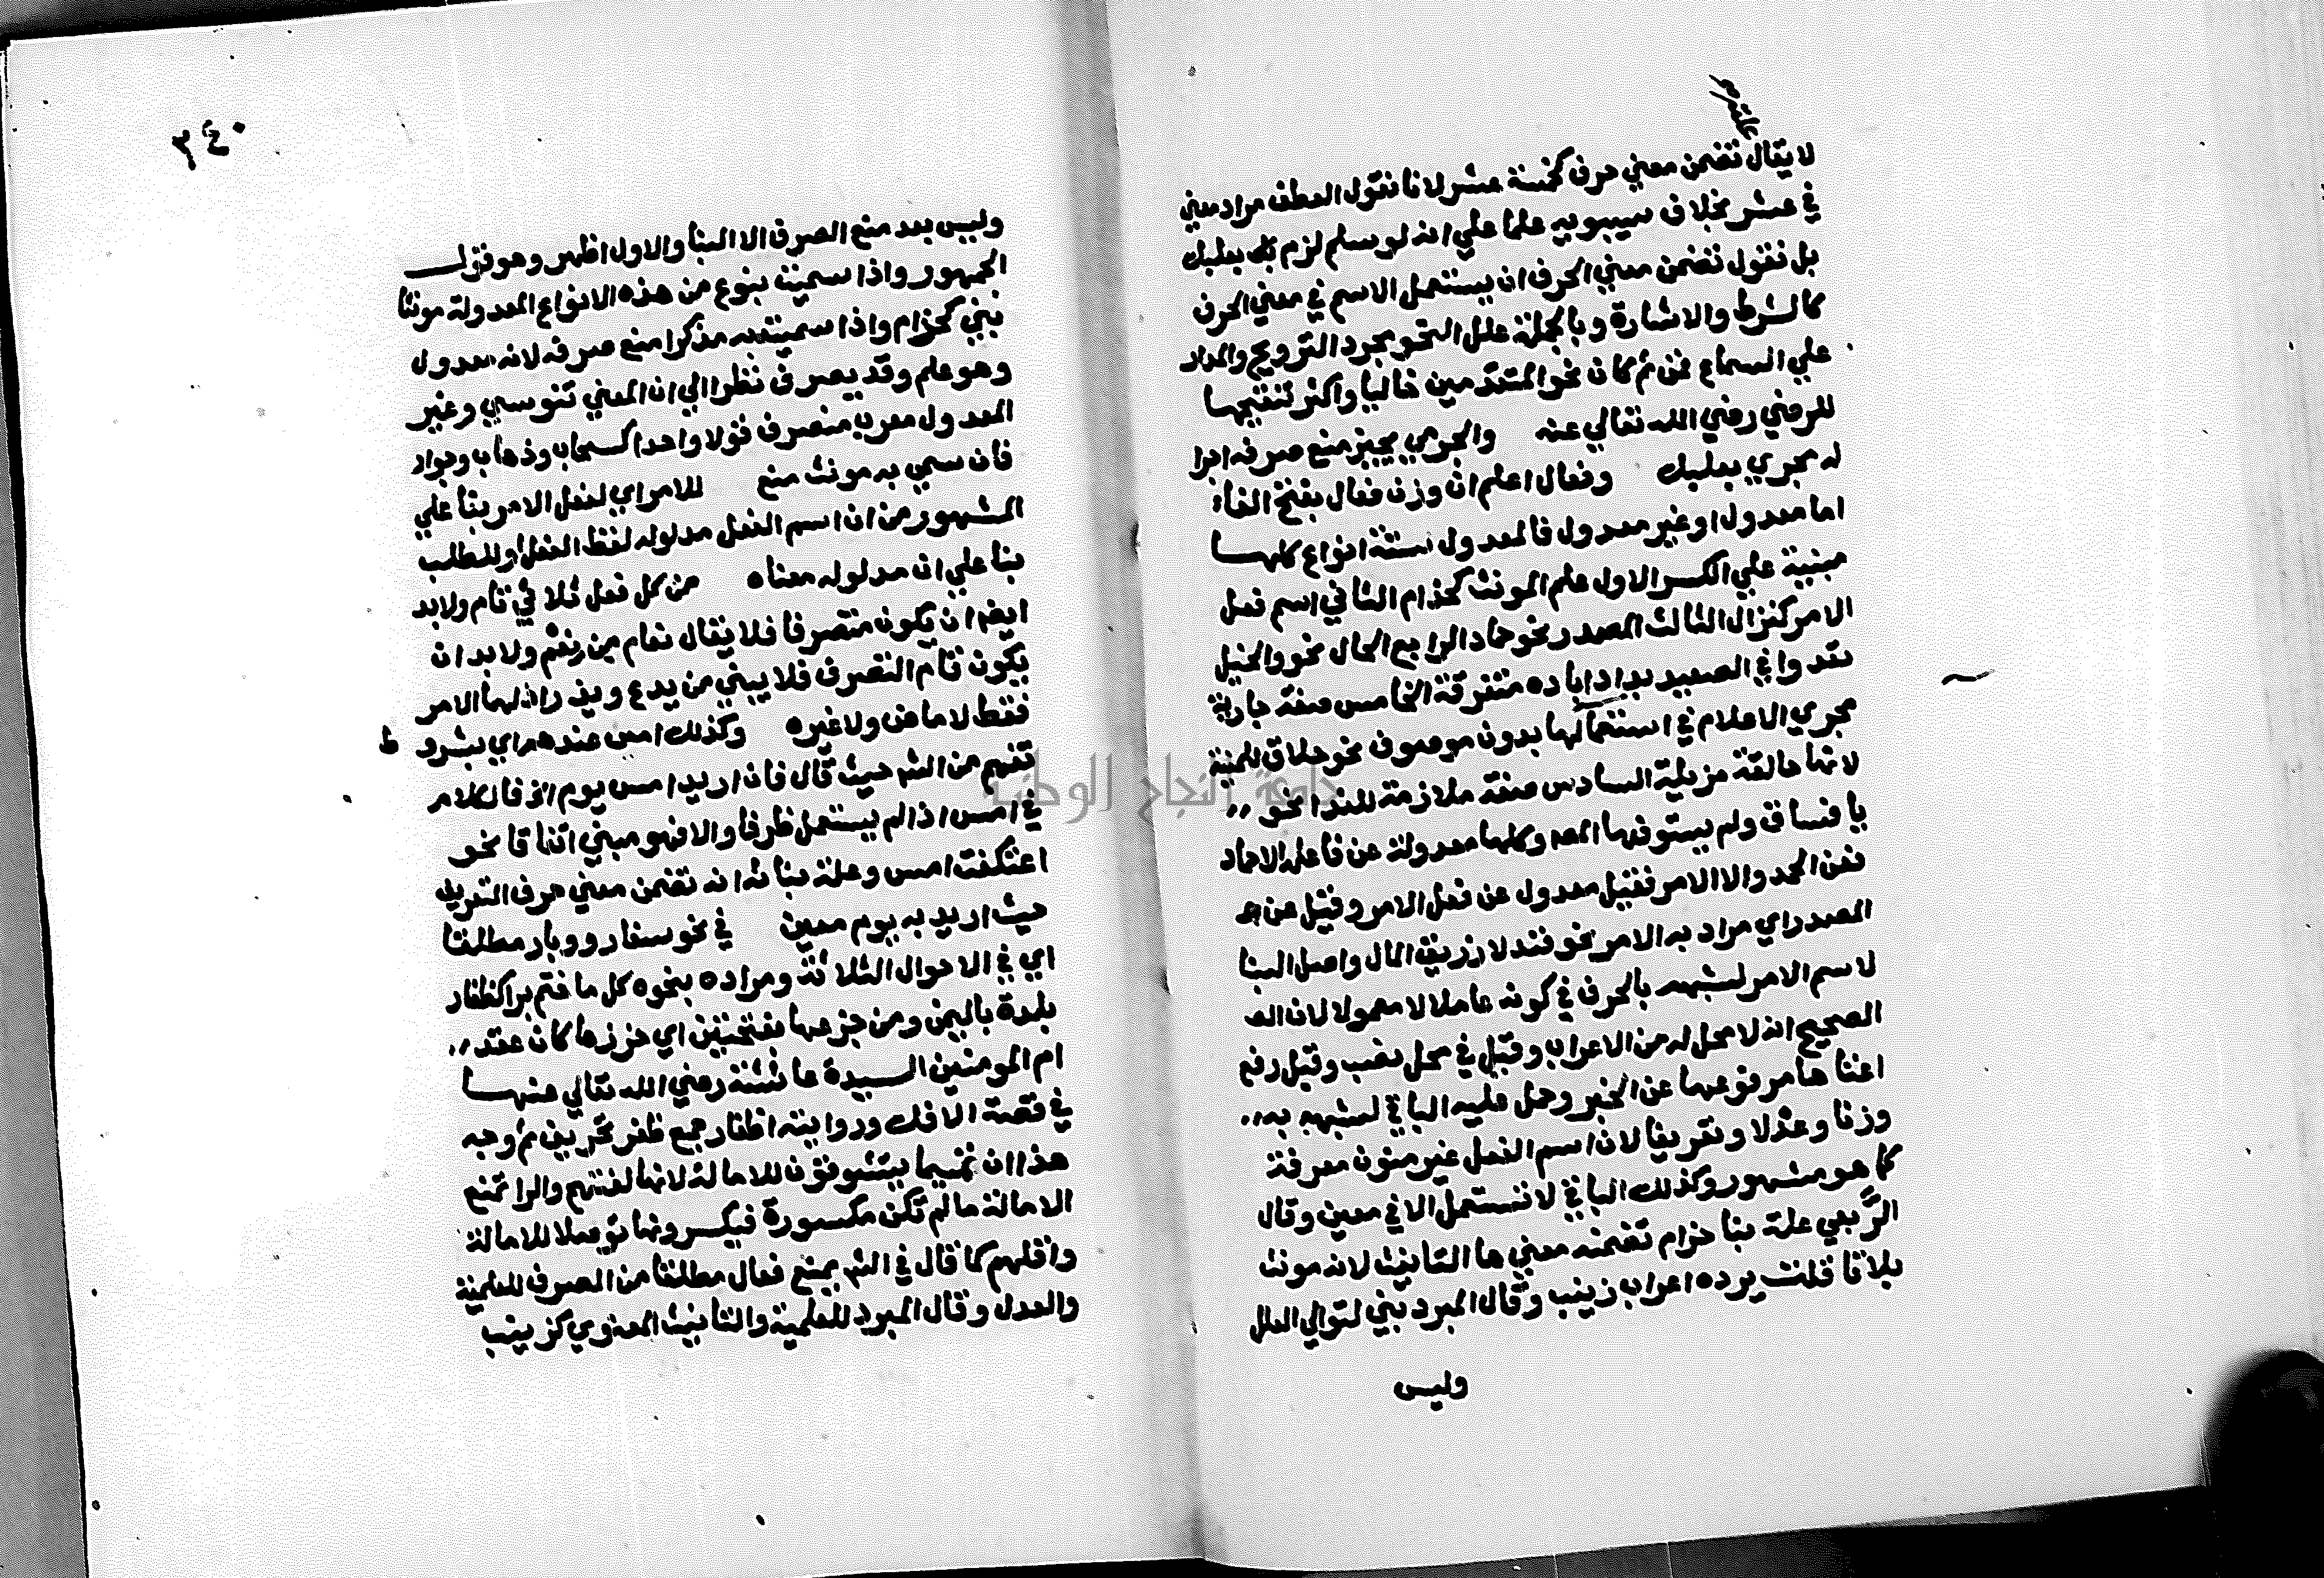 لا يقال تضمن معني حرف كخمسة عشر لانا نقول العطف مراد معني
في عشر بخلاف سيبويه علما علي انه لو سلم لزم بك بعلبك
بل نقول تضمن معني الحرف ان يستعمل الاسم في معني الحرف
كالشرط والاشارة وبالجملة علل النحو مجرد الترويح والمدار
علي السماع فمن ثم كان نحو المتقدمين غالبا واكثر تنقيحها
للرضي رضي الله تعالي عنه والجرمي يجيز منع صرفه اجرا
له مجري بعلبك وفعال اعلم ان وزن فعال بفتح الفاء
اما معدول او غير معدول فالمعدول ستة انواع كلها
مبنية علي الكسر الاول علم المونث كحذام الثاني اسم فعل
الامر كنزال الثالث المصدر نحو حماد الرابع الحال نحو والخيل
تعدوا في الصعيد بداد اباده متفرقة الخامس صفة جارية
مجري الاعلام في استعمالها بدون موصوف نحو حلاق للمنية
لانها حالقة مزيلة السادس صفة ملازمة للندا نحو
يا فساق ولم يستوفها المص وكلها معدولة عن فاعله الا حماد
فعن الحمد والا الامر فقيل معدول عن فعل الامر وقيل عن
المصدر اي مراد به الامر نحو فندلا زريق المال واصل البنا
لاسم الامر لشبهه بالحرف في كونه عاملا لا معمولا لان الص
الصحيح انه لا محل له من الاعراب وقيل في محل نصب وقيل رفع
اغنا ها مرفوعها عن الخبر وحمل عليه الباقي لشبهه به
وزنا وعدلا وتعريفا لان اسم الفعل غير منون معرفة
كما هو مشهور وكذلك الباقي لا تستعمل الا في معين وقال
الربعي علة بنا حزام تضمنه معني ها التانيث لانه مونث
بلا تا قلت يرده اعراب زينب وقال المبرد بني لتوالي العلل
وليس
٢٤٠
وليس بعد منع الصرف الا البنا والاول اظهر وهو قول
الجمهور واذا سميت بنوع من هذه الانواع المعدولة مونثا
بني كحذام واذا سميت به مذكرا منع صرفه لانه معدول
وهو علم وقد يصرف نظرا الي ان المعني تنوسي وغير
المعدول معرب منصرف قولا واحدا كسحاب وذهاب وجواد
فان سمي به مونث منع للامر اي لفعل الامر بنا علي
المشهور من ان اسم الفعل مدلوله لفظ الفعل او للطلب
بنا علي ان مدلوله معناه من كل فعل ثلاثي تام ولابد
ايضا ان يكون متصرفا فلا يقال نعام من نعم ولابد ان
يكون تام التصرف فلا يبني من يدع ويذر اذ لهما الامر
فقط لا ماض ولا غيره وكذلك امس عندهم اي بشرو ط
تفهم من الشرح حيث قال فان اريد امس يوم الخ فالكلام
في امس اذا لم يستعمل ظرفا والا فهو مبني اتفاقا نحو
اعتكفت امس وعلة بنائه انه تضمن معني حرف التعريف
حيث اريد به يوم معين في نحو سفار ووبار مطلقا
اي في الاحوال الثلاثة ومراده بنحوه كل ما ختم برا كظفار
بلدة باليمن ومن جزعها بفتحتين اي خرزها كان عقد
ام المومنين السيدة عائشة رضي الله تعالي عنها
في قصة الافك ورواية اظفار جمع ظفر تحريف ثم وجه
هذا ان تميما يتشوفون للامالة لانها لغتهم والرا تمنع
الامالة ما لم تكن مكسورة فيكسرونها توصلا للامالة
واقلهم كما قال في الشرح يمنع فعال مطلقا من الصرف للعلمية
والعدل وقال المبرد للعلمية والتانيث المعنوي كزينب